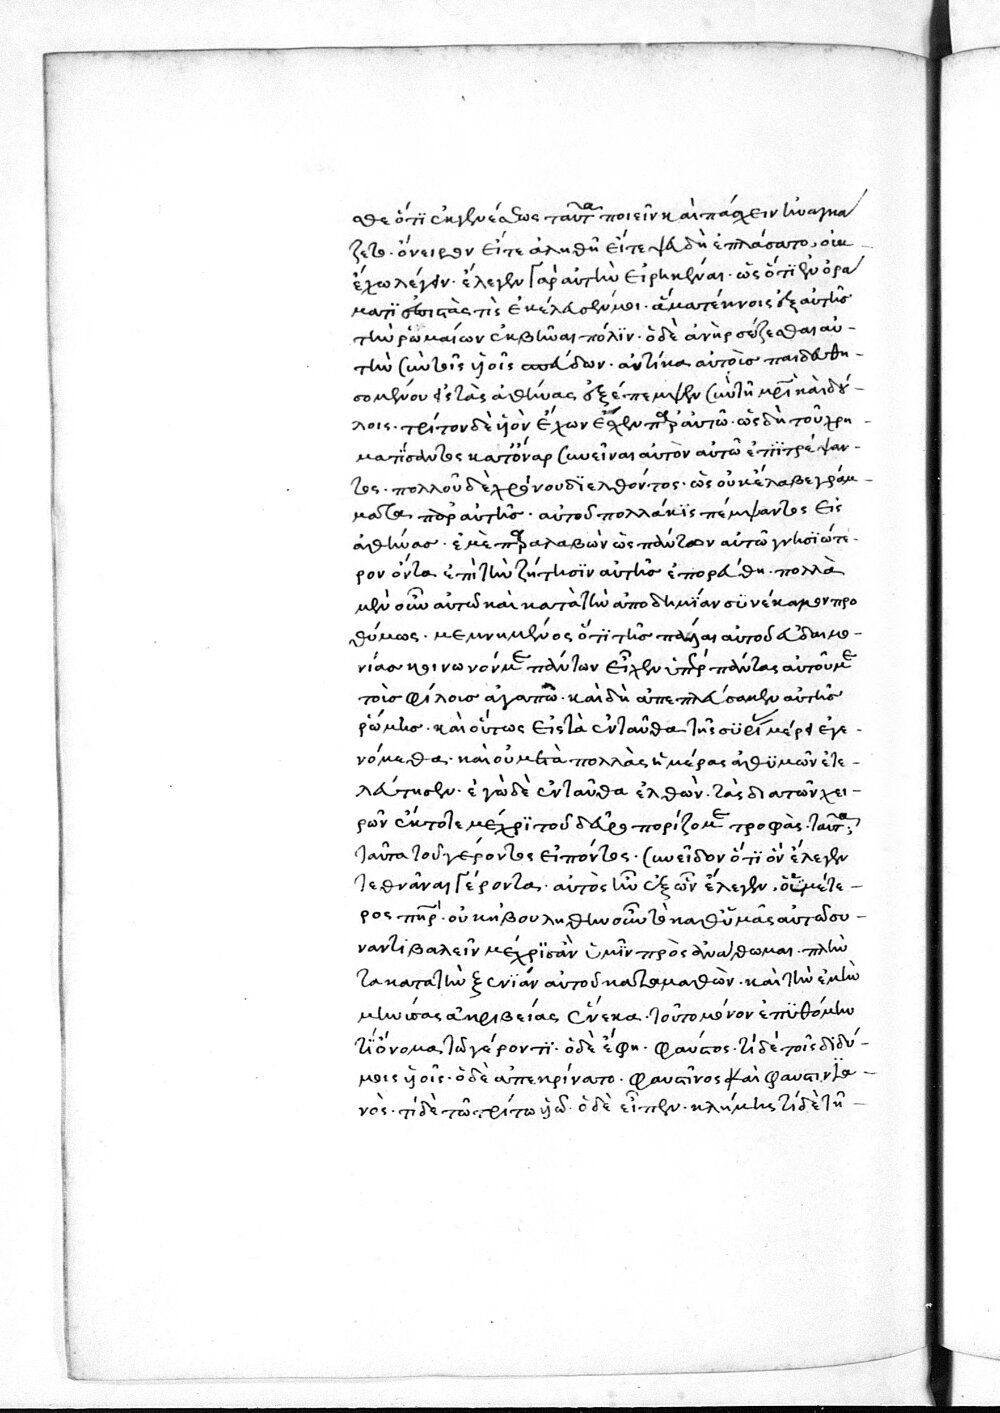 σθε ὅτι ἐκ γενέσεως ταῦτα ποιεῖν καὶ πάσχειν ἠναγκά
ζετο. ὄνειρον εἴτε ἀληθῆ εἴτε ψευδῆ ἐπλάσατο, οὐκ
ἔχω λέγειν. ἔλεγεν γὰρ αὐτὴν εἰρηκέναι. ὡς ὅτι ἐν ὁρά
ματι ἐπιστάς τις ἐκέλευσέν μοι. ἅμα τέκνοις ἐξαυτῆς
τὴν ῥωμαίων ἐκβῆναι πόλιν. ὁ δὲ ἀνὴρ σώζεσθαι αὐ-
τὴν σὺν τοῖς υἱοῖς σπεύδων. αὐτίκα αὐτοὺς παιδευθη-
σομένους εἰς τὰς ἀθήνας ἐξέπεμψεν σὺν τῇ μητρὶ καὶ δού-
λοις. τρίτον δὲ υἱὸν ἔχων ἔσχεν παρ' αὐτῶ. ὡς δὴ τοῦ χρη-
ματίσαντος κατ' ὄναρ συνεῖναι αὐτὸν αὐτῶ ἐπιτρέψαν-
τος. πολλοῦ δὲ χρόνου διελθόντος. ὡς οὐκ ἔλαβε γράμ-
ματα παρ' αὐτῆς. αὐτοῦ πολλάκις πέμψαντος εἰς
ἀθήνας. ἐμὲ παραλαβὼν ὡς πάντων αὐτῶ γνησιώτε-
ρον ὄντα ἐπὶ τὴν ζήτησιν αὐτῆς ἐπορεύθη. πολλὰ
μὲν οὖν αὐτῶ καὶ κατὰ τὴν ἀποδημίαν συνέκαμον προ
θύμως. μεμνημένος ὅτι τῆς πάλαι αὐτοῦ εὐδαιμο-
νίας κοινωνόν με πάντων εἶχεν ὑπὲρ πάντας αὐτοῦ με
τοὺς φίλους ἀγαπῶν. καὶ δὴ ἀπεπλεύσαμεν αὐτῆς
ῥώμης. καὶ οὕτως εἰς τὰ ἐνταῦθα τῆς συρίας μέρη ἐγε-
νόμεθα. καὶ οὐ μετὰ πολλὰς ἡμέρας ἀθυμῶν ἐτε-
λεύτησεν. ἐγὼ δὲ ἐνταῦθα ἐλθὼν. τὰς διὰ τῶν χει-
ρῶν ἔκτοτε μέχρι τοῦ δεῦρο πορίζομαι τροφὰς. ταῦτα
ταῦτα τοῦ γέροντος εἰπόντος. συνεῖδον ὅτι ὃν ἔλεγεν
τεθνᾶναι γέροντα. αὐτὸς ἦν ἐξ ὧν ἔλεγεν, ὁ ὑμέτε-
ρος πατήρ. οὐκ ἠβουλήθην οὖν τὰ καθ' ὑμᾶς αὐτῶ συ-
ναντιβαλεῖν μέχρις ἂν ὑμῖν προσανάθωμαι. πλὴν
τὰ κατὰ τὴν ξενίαν αὐτοῦ καταμαθὼν. καὶ τὴν ἐμὴν
μηνύσας ἀκριβείας ἕνεκα. τοῦτο μόνον ἐπυθόμην
τί ὄνομα τῶ γέροντι. ὁ δὲ ἔφη. φαύστος. τί δὲ τοῖς διδύ-
μοις υἱοῖς. ὁ δὲ ἀπεκρίνατο. φαυστῖνος καὶ φαυστινια-
νός. τί δὲ τῶ τρίτω υἱῶ. ὁ δὲ εἶπεν. κλήμης τί δὲ τῆ-